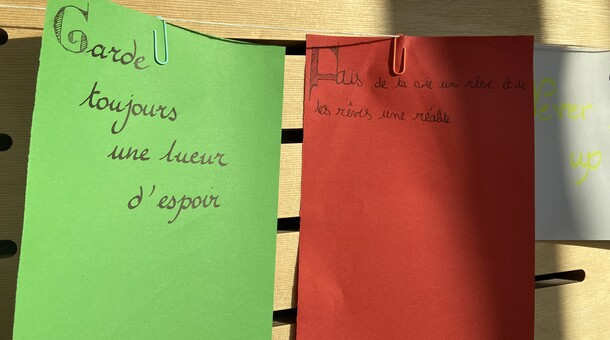 Garde
toujours
une lueur
d'espoir
Fais de ta vie un rêve et de
tes rêves une réalité
up